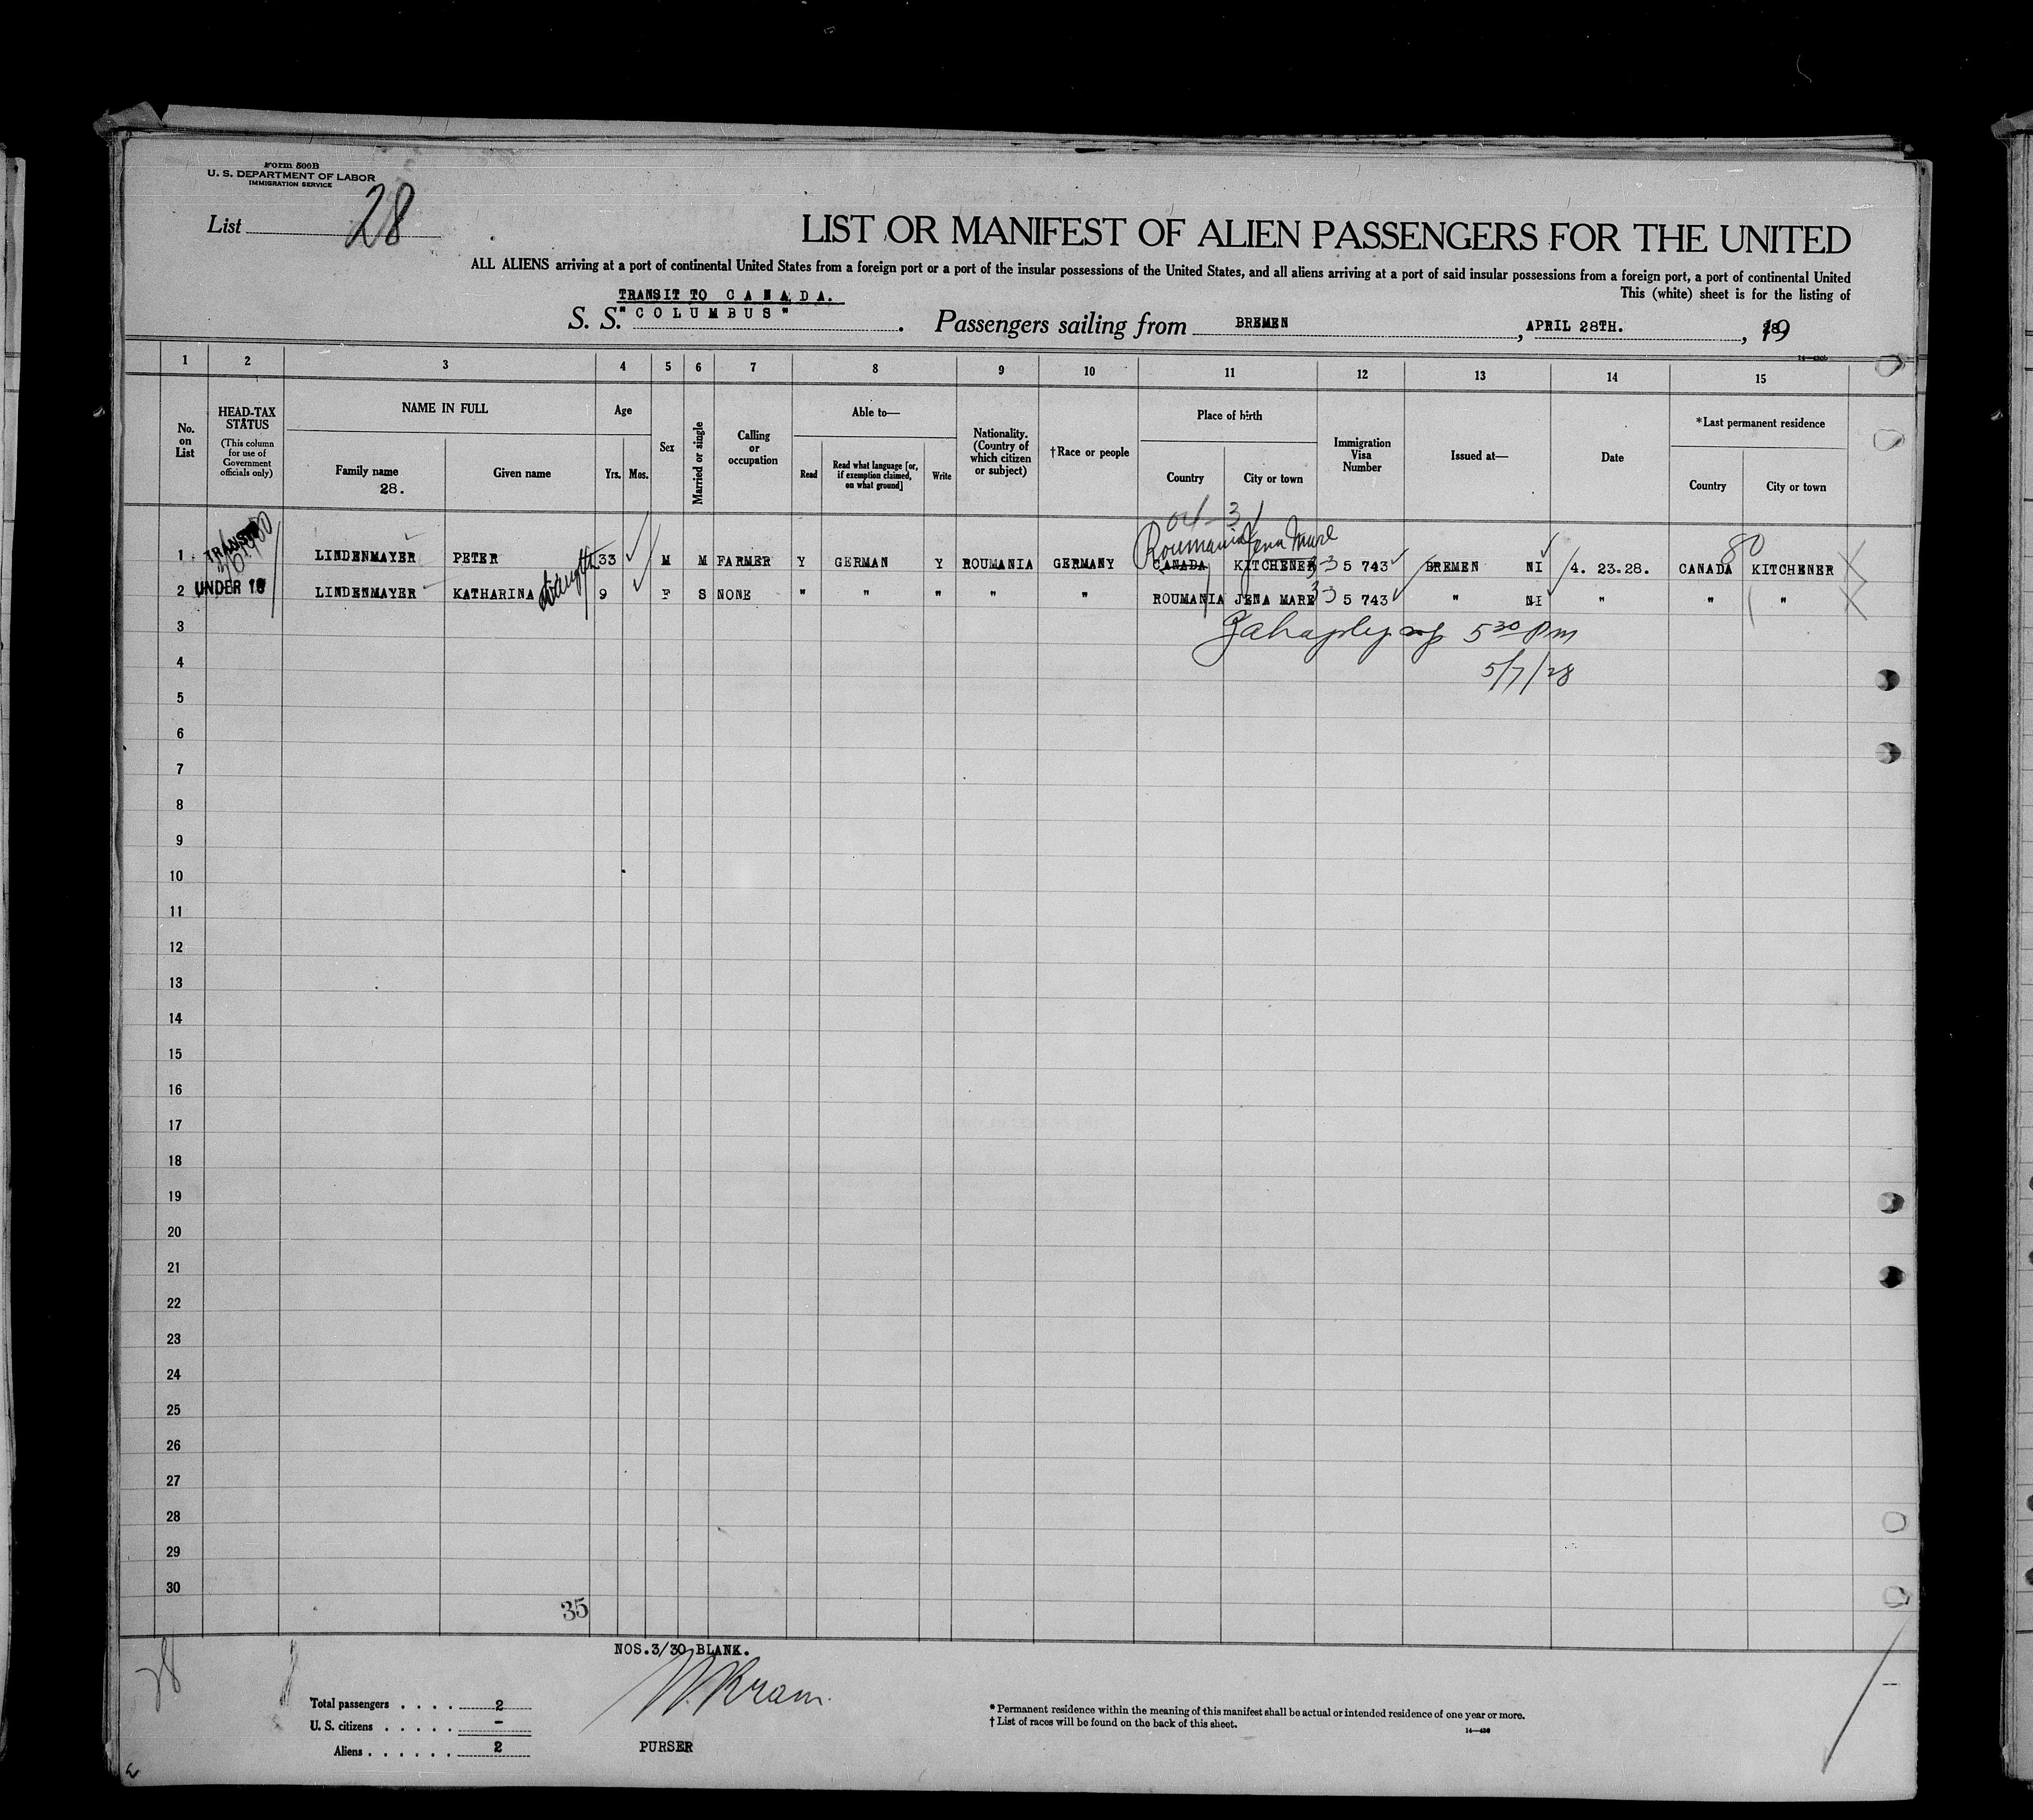 Form 500B
U. S. DEPARTMENT OF LABOR
IMMIGRATION SERVICE
List 28
LIST OR MANIFEST OF ALIEN PASSENGERS FOR THE UNITED
ALL ALIENS arriving at a port of continental United States from a foreign port or a port of the insular possessions of the United States, and all aliens arriving at a port of said insular possessions from a foreign port, a port of continental United
This (white) sheet is for the listing of
TRANSIT TO CANADA.
S. S. "COLUMBUS". Passengers sailing from BREMEN, APRIL 28TH., 1928
1 2 3 4 5 6 7 8 9 10 11 12 13 14 15
No. on List
HEAD-TAX STATUS
(This column for use of Government officials only)
NAME IN FULL
Family name
28.
Given name
Age
Yrs. Mos.
Sex
Married or single
Calling or occupation
Able to—
Read
Read what language [or, if exemption claimed, on what ground]
Write
Nationality. (Country of which citizen or subject)
†Race or people
Place of birth
Country
City or town
Immigration Visa Number
Issued at—
Date
*Last permanent residence
Country
City or town
Roumania Jena Mare
80
1 TRANSIT LINDENMAYER PETER 33 M M FARMER Y GERMAN Y ROUMANIA GERMANY CANADA KITCHENER 5 743 BREMEN NI 4. 23.28. CANADA KITCHENER
2 UNDER 16 LINDENMAYER KATHARINA daught 9 F S NONE " " " " " ROUMANIA JENA MARE 5 743 " NI " " "
3
5 30 Pm
4
5/7/28
5
6
7
8
9
10
11
12
13
14
15
16
17
18
19
20
21
22
23
24
25
26
27
28
29
30
35
NOS.3/30 BLANK.
28
Total passengers . . . . 2
U. S. citizens . . . . . -
Aliens . . . . . . 2
PURSER
* Permanent residence within the meaning of this manifest shall be actual or intended residence of one year or more.
† List of races will be found on the back of this sheet.